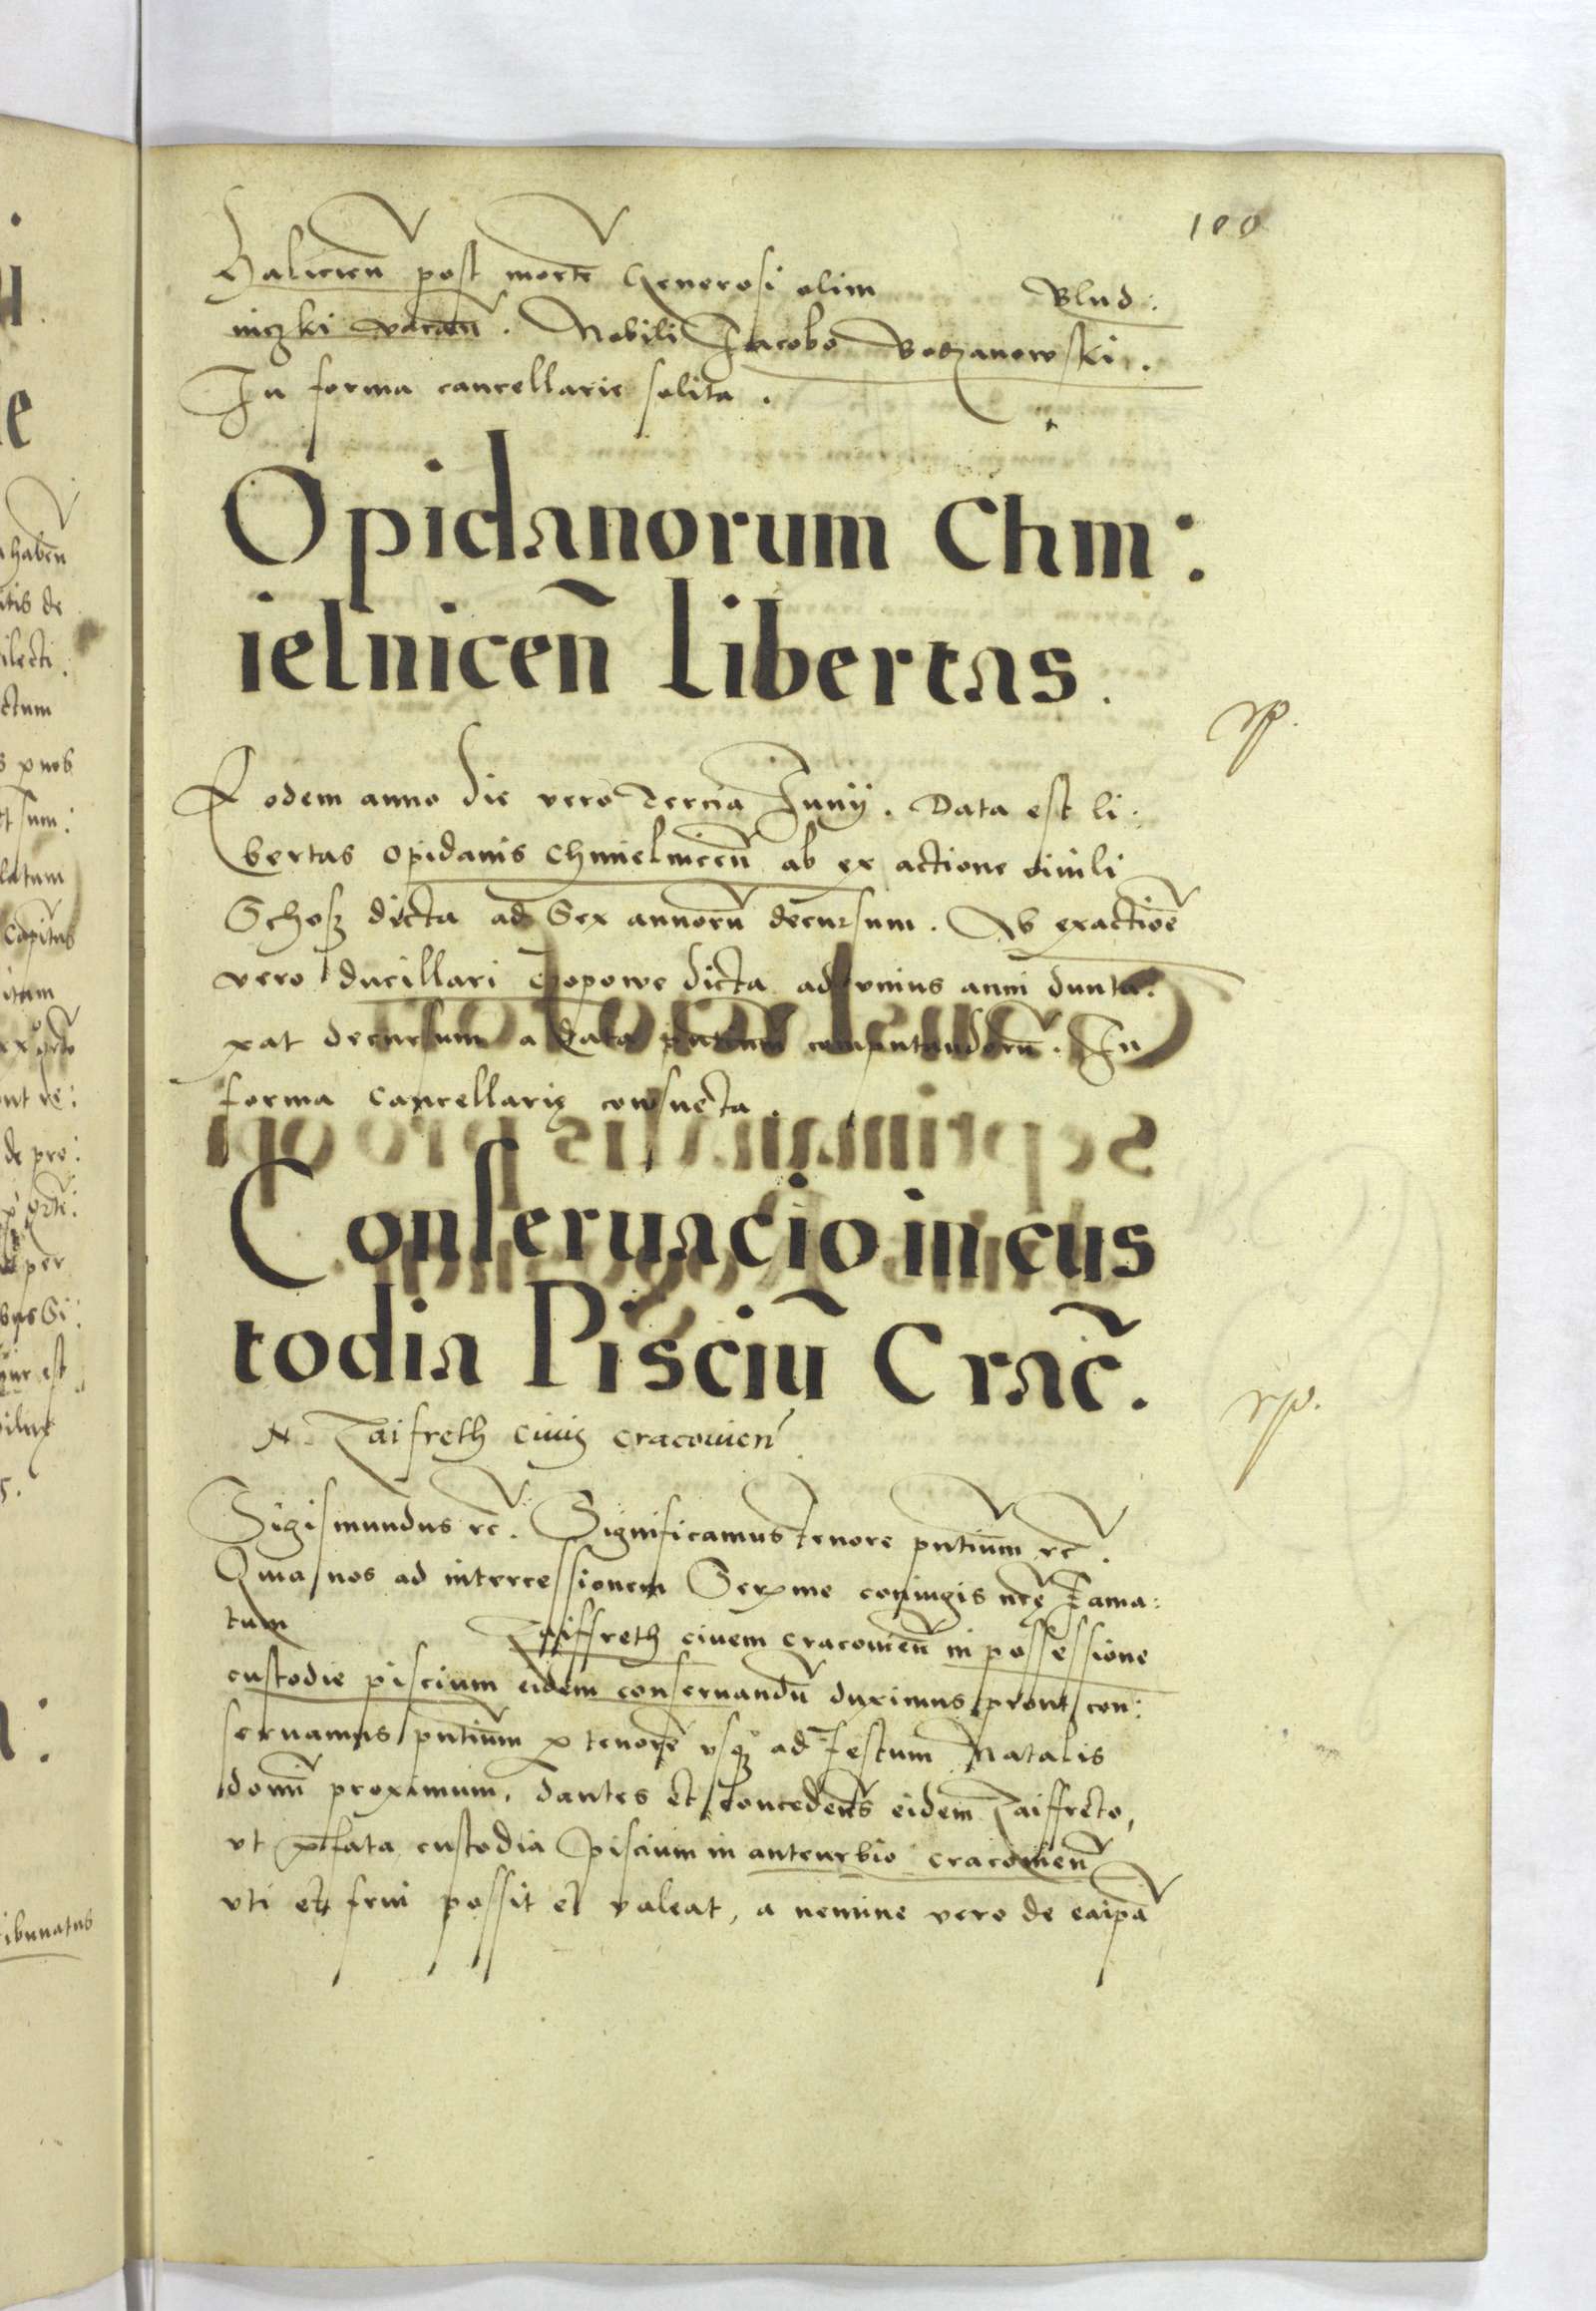 100
Halicien̄ post mortē Generosi olim Blud:
niczki vacan̄. Nobili Jacobo Boczanowski.
In forma cancellarie solita.
Opidanorum Chm:
ielnicen̄ libertas.
rp.
Eodem anno die vero Tercia Junij. Data est li:
bertas opidanis Chmielnicen̄ ab exactione civili
Schosz dicta ad Sex annorū decursum. Ab exactiōe
vero ducillari Czopowe dicta ad vnius anni dunta:
xat decursum a data pn̄tium computandorū. In
forma Cancellarie consueta.
Conseruacio in cus
todia Pisciū Crac̄.
rp.
N. Zaifreth ciuis cracouien̄
Sigismundus rc̄. Significamus tenore pn̄tium rc̄.
Quia nos ad intercessionem Serme coniugis nr̄e Fama:
tum Zaiffreth ciuem cracouien̄ in possessione
custodie piscium eidem conseruandū duximus prout con:
seruamus pn̄tium p tenorē vsq ad Festum Natalis
domī proximum, dantes et concedens̄ eidem Zaiffreto,
vt p̄fata custodia piscium in anteurbio cracouien̄
vti et frui possit et valeat, a nemine vero de ea ip̄a